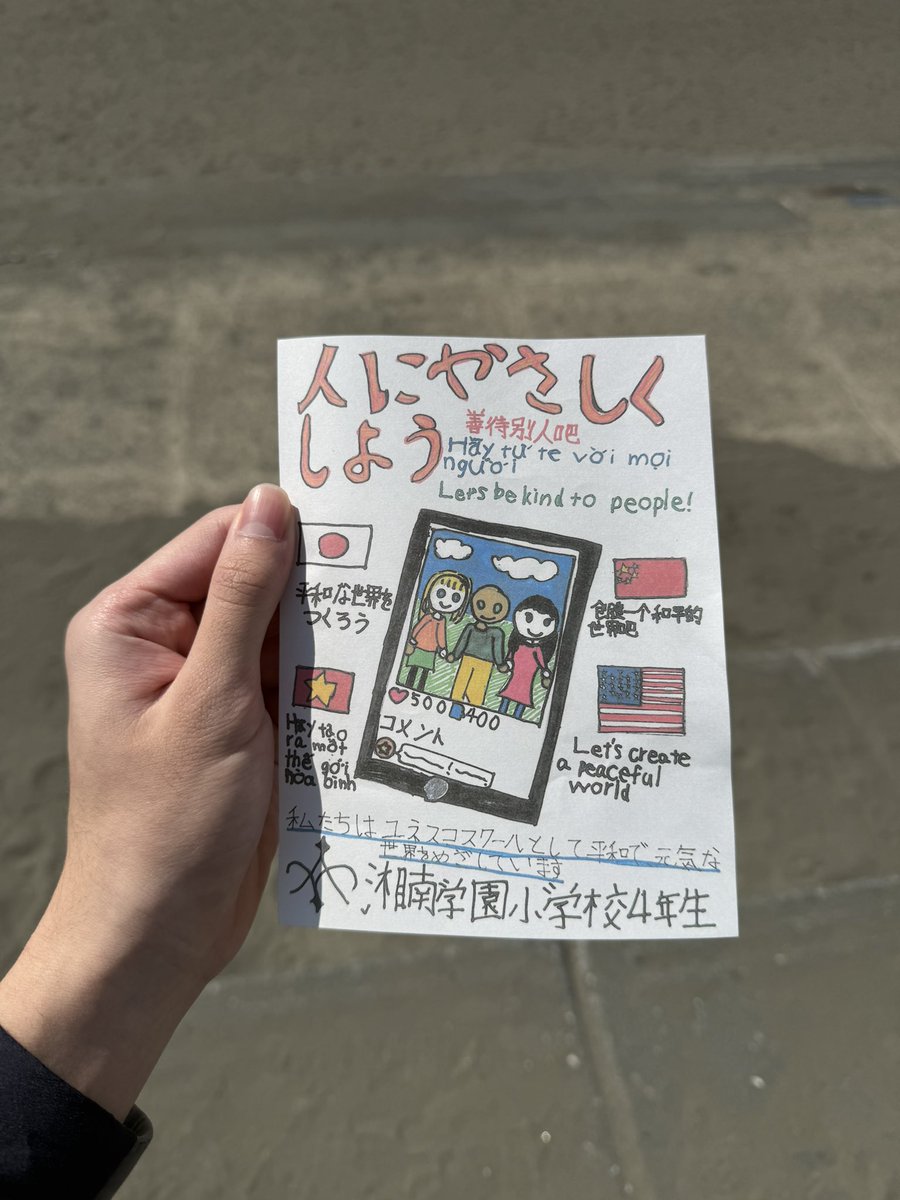 人にやさしく
しよう
善待别人吧
Hãy tử tế vời mọi
người
Let's be kind to people!
平和な世界を
つくろう
一个和平的
世界吧
Hãy tạo
ra một
thế giới
hòa bình
Let's create
a peaceful
world
500 400
コメント
私たちはユネスコスクールとして平和で元気な
世界をめざしています
湘南学園小学校4年生